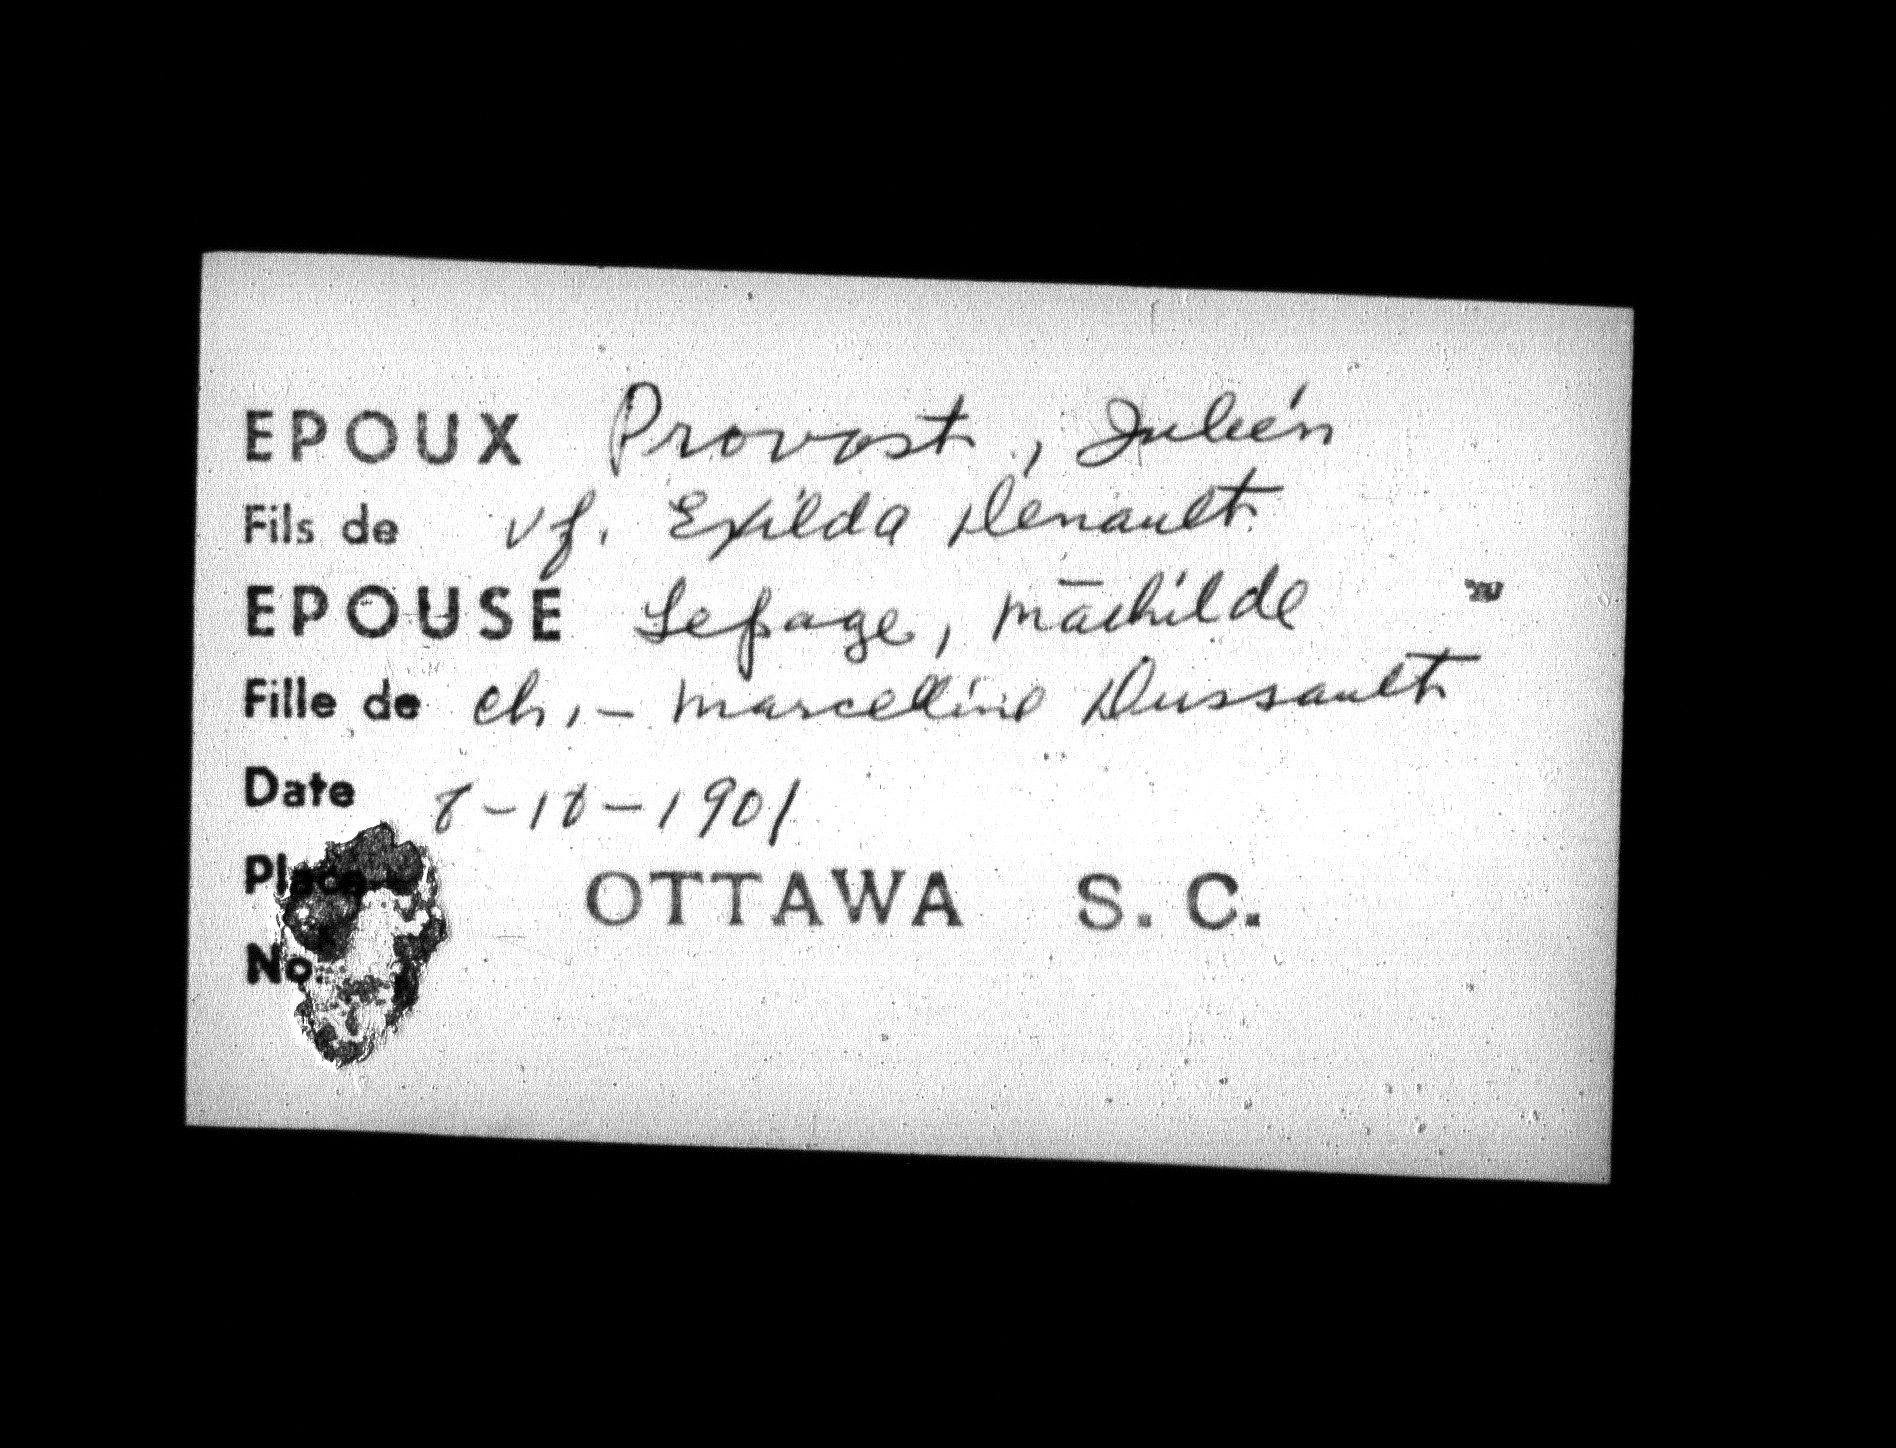 EPOUX Provost, Julien
Fils de vf. Exilda Denault
EPOUSE Lepage, Mathilde
Fille de ch,- Marcelline Dussault
Date 8-10-1901
Place OTTAWA S.C.
No.